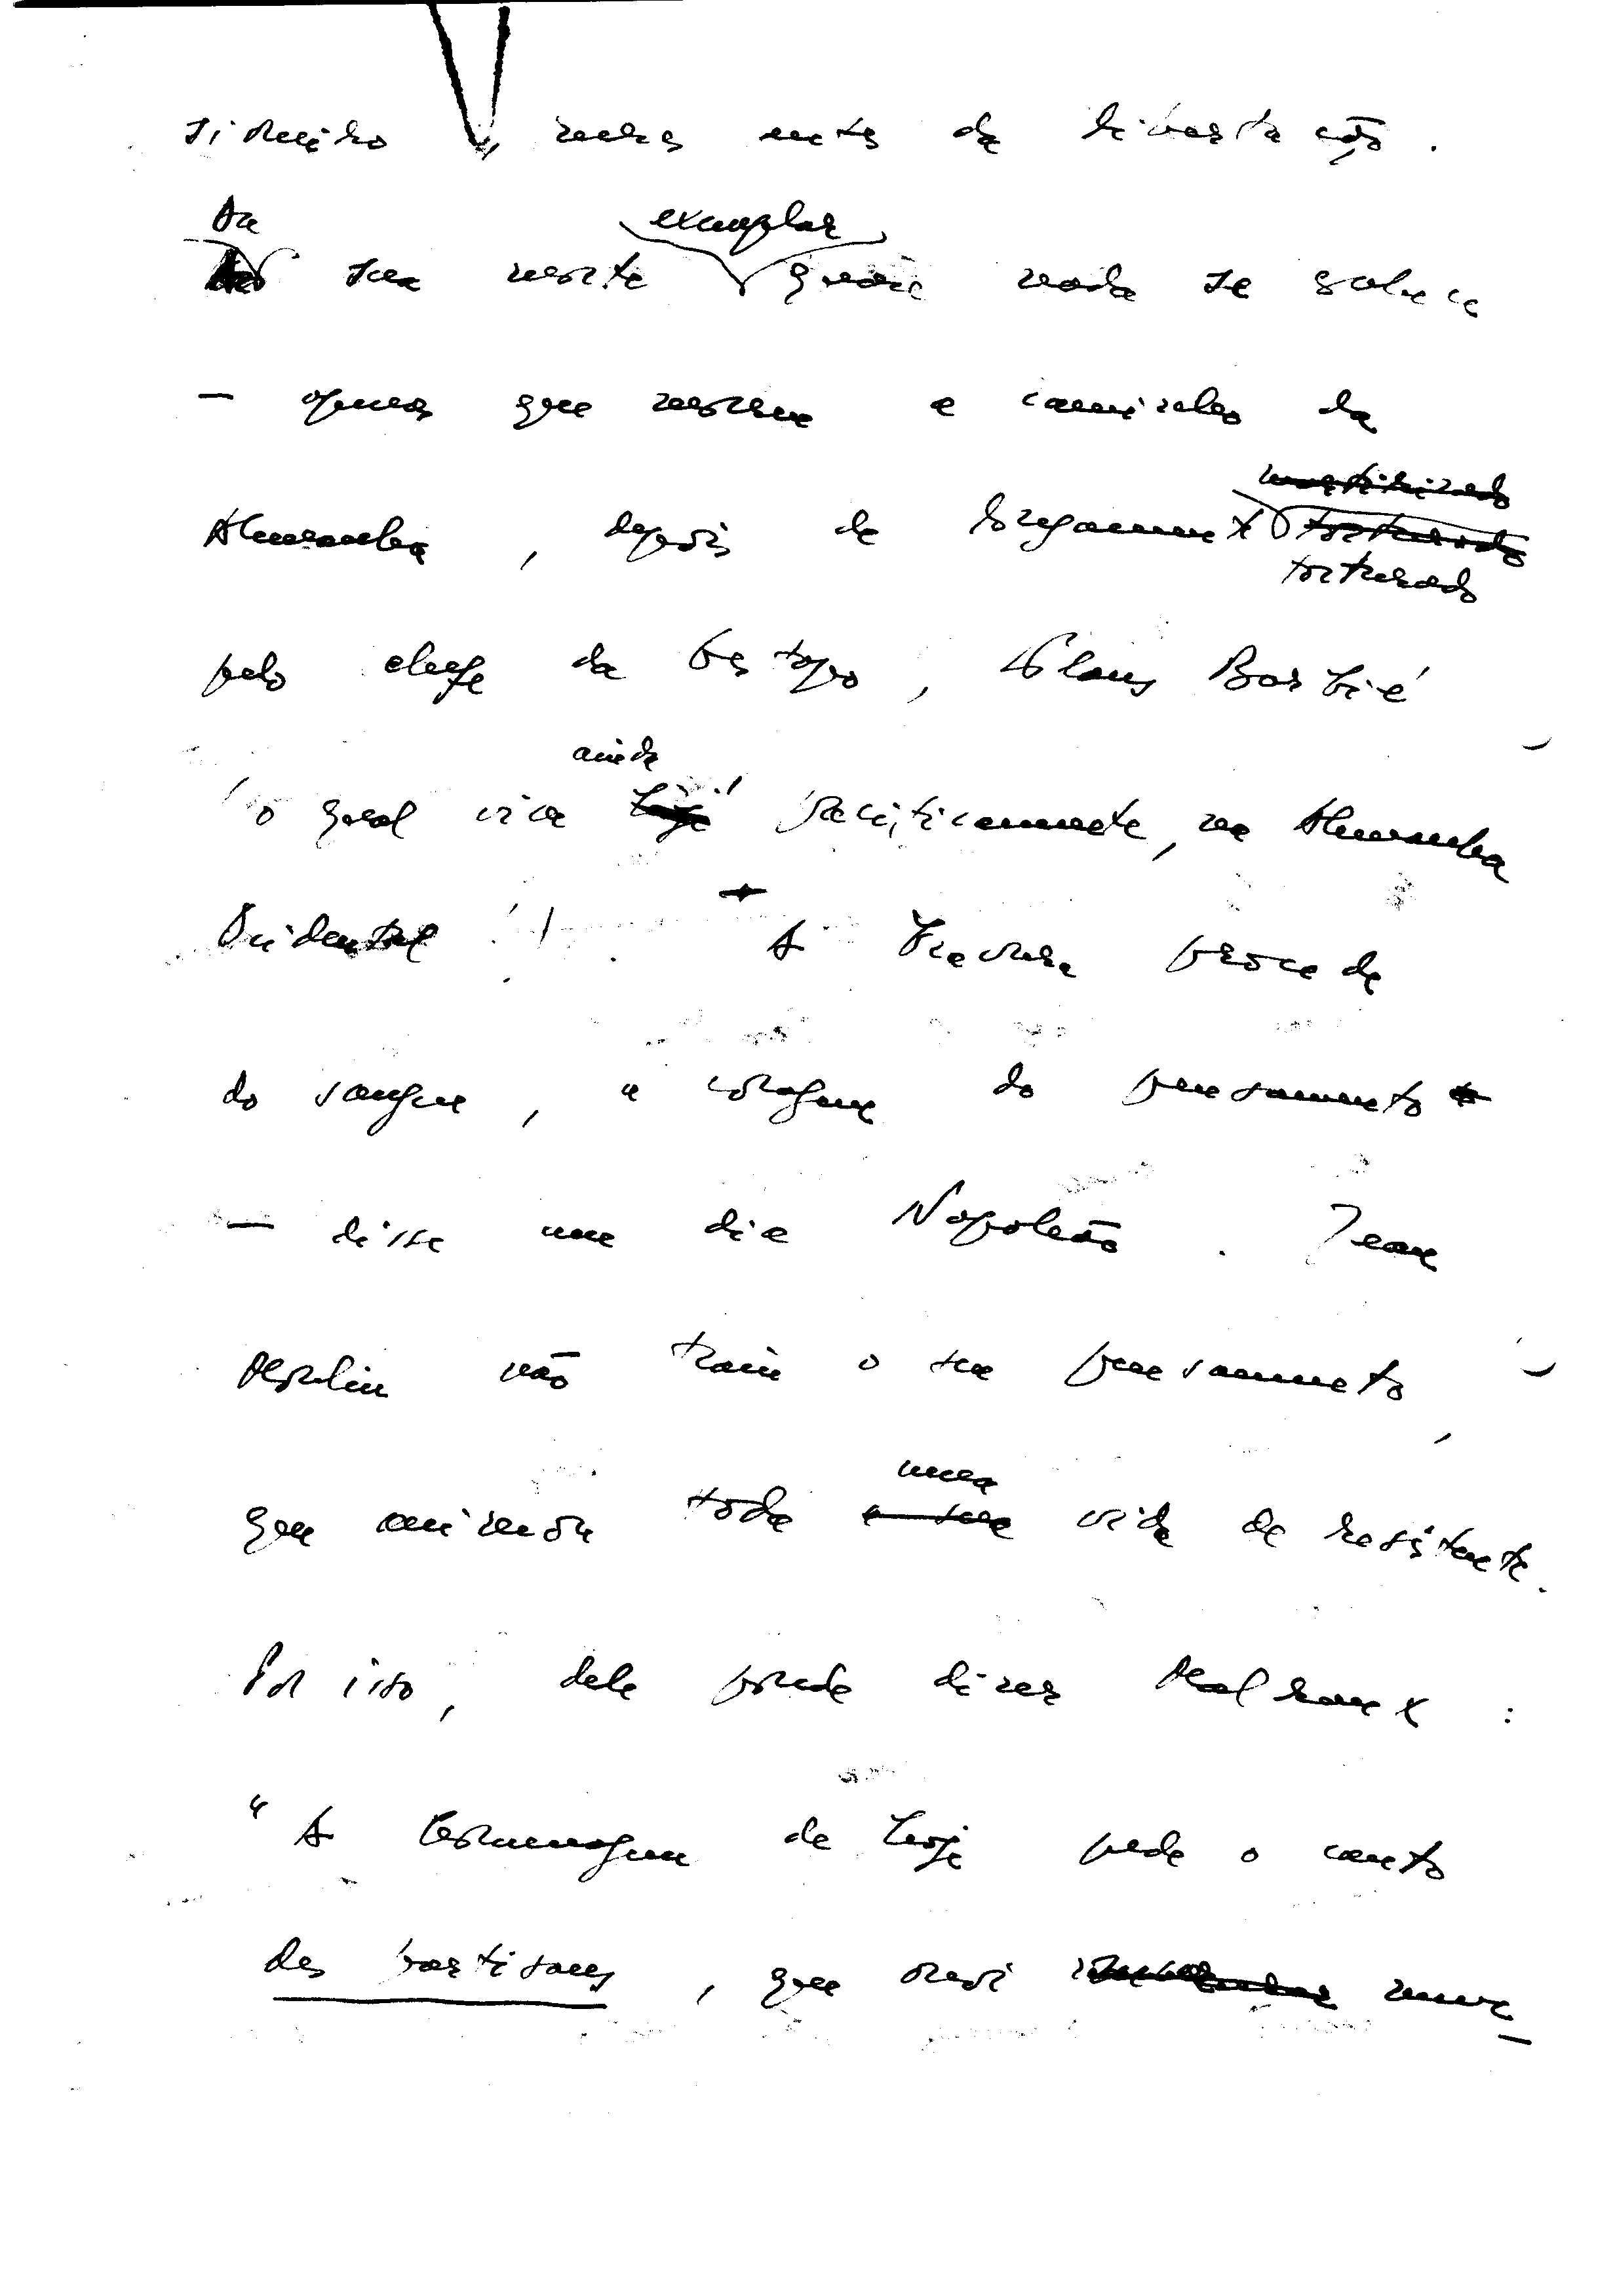 da libertação.
Da exemplar
sua morte quase nada se sabe
— apenas que morreu a caminho da
Alemanha, depois de longamente torturado
pelo chefe da Gestapo, Klaus Barbié
ainda
(o qual vive hoje pacificamente, na Alemanha
Ocidental!). A bravura procede
do sangue, a coragem do pensamento
— disse um dia Napoleão. Jean
Moulin não traiu o seu pensamento,
uma
que animou toda a sua vida de resistente.
Por isso, dele pode dizer Malraux:
"A homenagem de hoje pede o canto
des partisans, que ouvi